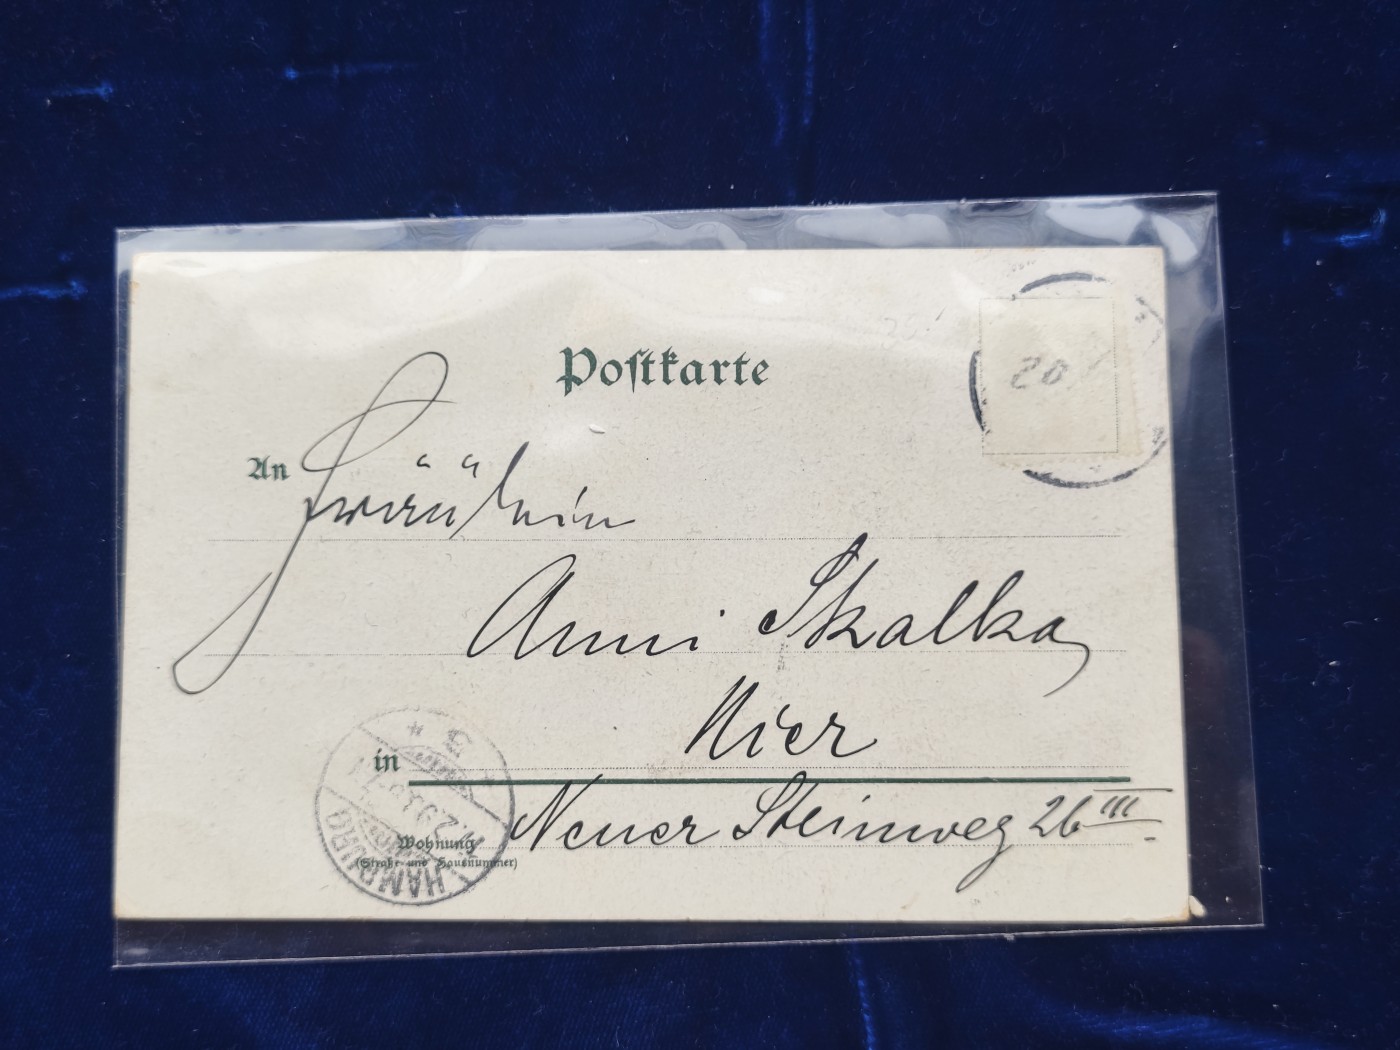 Postkarte
20
An Fräulein
Anni Skalka
in Hier
Neuer Steinweg 26 III
Wohnung
(Straße und Hausnummer)
HAMBURG